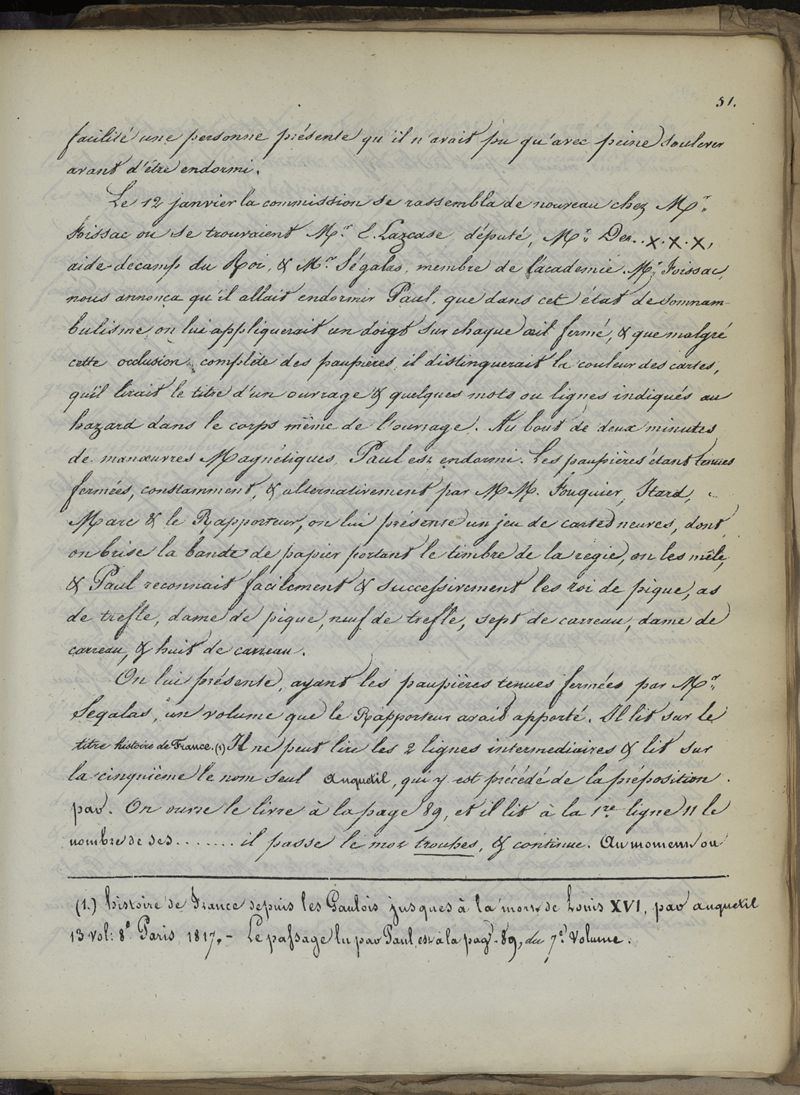 51.
facilité une personne présente qu'il n'avait pu qu'avec peine soulever
avant d'être endormi.
Le 12 janvier la commission se rassembla de nouveau chez Mr.
Foissac ou se trouvaient Mr. E. Lazcase député, Mr. Des..x.x.x,
aide-decamp du Roi, & Mr. Ségalas, membre de l'académie. Mr. Foissac,
nous annonça qu'il allait endormir Paul, que dans cet état de somnam-
bulisme on lui appliquerait un doigt sur chaque œil fermé, & que malgré
cette occlusion complète des paupières il distinguerait la couleur des cartes,
qu'il lirait le titre d'un ouvrage & quelques mots ou lignes indiqués au
hazard dans le corps même de l'ouvrage. Au bout de deux minutes
de manœuvres Magnétiques, Paul est endormi. Les paupières étant tenues
fermées, constamment, & alternativement par M M. Fouquier, Itard,
Marc & le Rapporteur, on lui présente un jeu de cartes neuves, dont
on brise la bande de papier portant le timbre de la régie, on les mêle,
& Paul reconnait facilement & successivement les roi de pique, as
de trefle, dame de pique, neuf de trefle, sept de carreau, dame de
carreau, & huit de carreau.
On lui présente, ayant les paupières tenues fermées par Mr.
Segalas, un volume que le Rapporteur avait apporté. Il lit sur le
titre histoire de France. (1) Il ne peut lire les 2 lignes intermediaires & lit sur
la cinquième le nom seul Anquetil, qui y est précédé de la préposition
par. On ouvre le livre à la page 89, et il lit à la 1re ligne 11 le
nombre de ses ....... il passe le mot troupes, & continue. Au moment ou
(1.) histoire de France depuis les Gaulois jusques à la mort de Louis XVI, par anquetil
13 vol: 8° Paris 1817. - Le passage lu par Paul est à la pag. 89, du 7e. Volume.